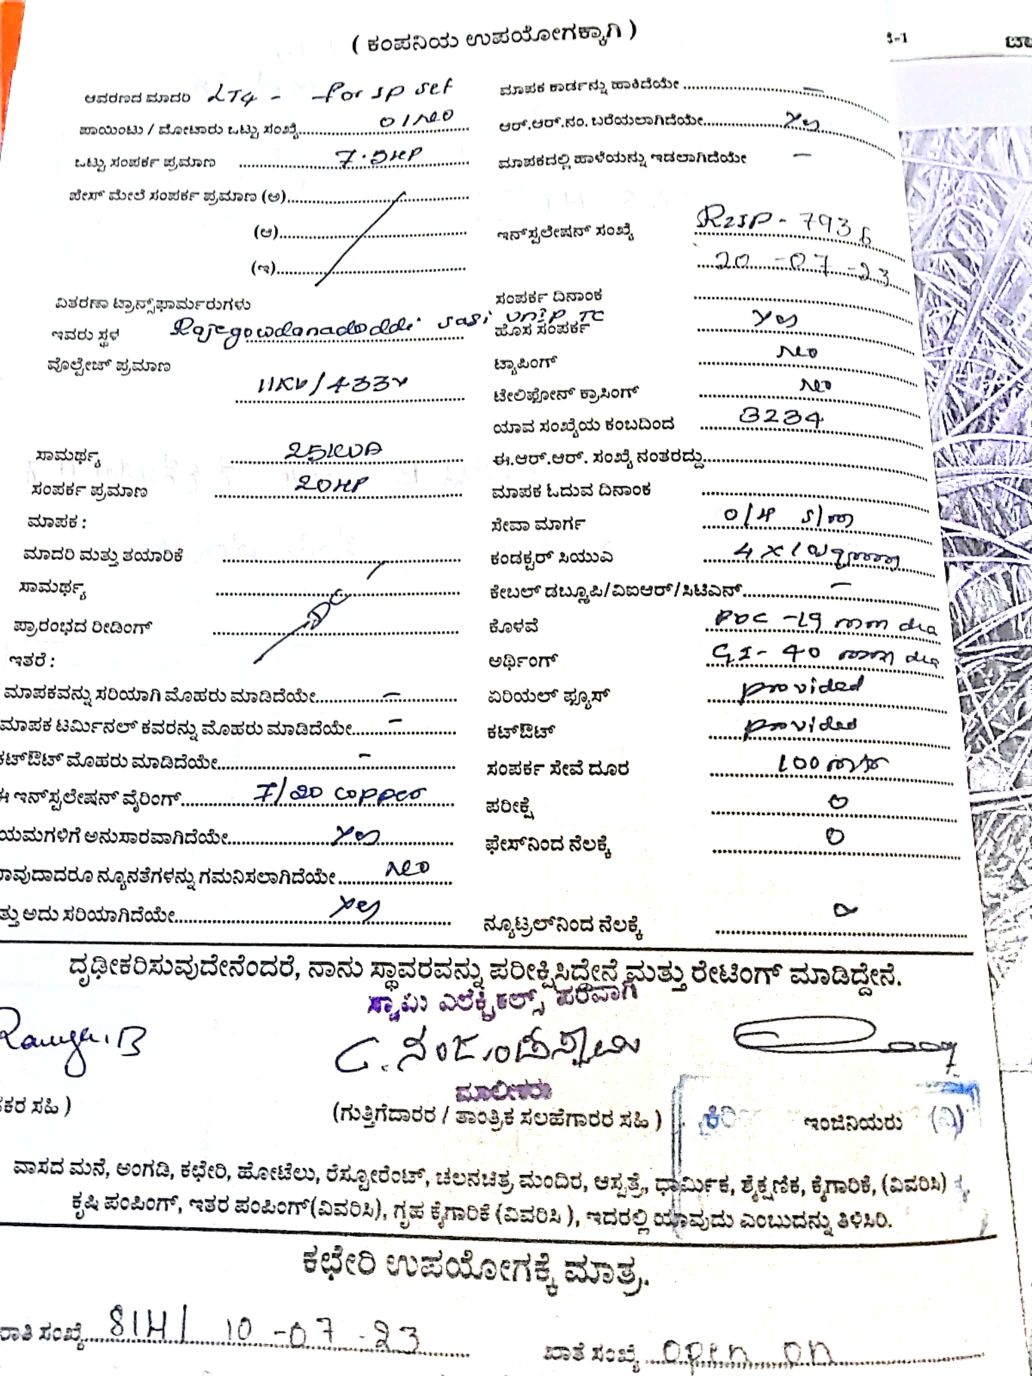 ( ಕಂಪನಿಯ ಉಪಯೋಗಕ್ಕಾಗಿ )
ಆವರಣದ ಮಾದರಿ LT4 - for sp set
ಪಾಯಿಂಟು / ಮೋಟಾರು ಒಟ್ಟು ಸಂಖ್ಯೆ 01 No
ಒಟ್ಟು ಸಂಪರ್ಕ ಪ್ರಮಾಣ 7.5HP
ಫೇಸ್ ಮೇಲೆ ಸಂಪರ್ಕ ಪ್ರಮಾಣ (ಅ)
(ಆ)
(ಇ)
ವಿತರಣಾ ಟ್ರಾನ್ಸ್‌ಫಾರ್ಮರುಗಳು
ಇವರು ಸ್ಥಳ Rajegowdanadoddi
ವೊಲ್ಟೇಜ್ ಪ್ರಮಾಣ
11KV/433V
ಸಾಮರ್ಥ್ಯ 25KVA
ಸಂಪರ್ಕ ಪ್ರಮಾಣ 20HP
ಮಾಪಕ :
ಮಾದರಿ ಮತ್ತು ತಯಾರಿಕೆ
ಸಾಮರ್ಥ್ಯ
ಪ್ರಾರಂಭದ ರೀಡಿಂಗ್ DC
ಇತರೆ :
ಮಾಪಕವನ್ನು ಸರಿಯಾಗಿ ಮೊಹರು ಮಾಡಿದೆಯೇ -
ಮಾಪಕ ಟರ್ಮಿನಲ್ ಕವರನ್ನು ಮೊಹರು ಮಾಡಿದೆಯೇ -
ಕಟ್‌ಔಟ್ ಮೊಹರು ಮಾಡಿದೆಯೇ -
ಈ ಇನ್‌ಸ್ಟಲೇಷನ್ ವೈರಿಂಗ್ 7/20 copper
ಯಮಗಳಿಗೆ ಅನುಸಾರವಾಗಿದೆಯೇ Yes
ಾವುದಾದರೂ ನ್ಯೂನತೆಗಳನ್ನು ಗಮನಿಸಲಾಗಿದೆಯೇ No
ತ್ತು ಅದು ಸರಿಯಾಗಿದೆಯೇ Yes
ಮಾಪಕ ಕಾರ್ಡನ್ನು ಹಾಕಿದೆಯೇ -
ಆರ್.ಆರ್.ನಂ. ಬರೆಯಲಾಗಿದೆಯೇ Yes
ಮಾಪಕದಲ್ಲಿ ಹಾಳೆಯನ್ನು ಇಡಲಾಗಿದೆಯೇ -
ಇನ್‌ಸ್ಟಲೇಷನ್ ಸಂಖ್ಯೆ 7936
20-07-23
ಸಂಪರ್ಕ ದಿನಾಂಕ
ಹೊಸ ಸಂಪರ್ಕ Yes
ಟ್ಯಾಪಿಂಗ್ No
ಟೇಲಿಫೋನ್ ಕ್ರಾಸಿಂಗ್ No
ಯಾವ ಸಂಖ್ಯೆಯ ಕಂಬದಿಂದ 3234
ಈ.ಆರ್.ಆರ್. ಸಂಖ್ಯೆ ನಂತರದ್ದು
ಮಾಪಕ ಓದುವ ದಿನಾಂಕ
ಸೇವಾ ಮಾರ್ಗ O/H S/m
ಕಂಡಕ್ಟರ್ ಸಿಯುಎ
ಕೇಬಲ್ ಡಬ್ಲ್ಯೂಪಿ/ವಿಐಆರ್/ಸಿಟಿಎನ್ -
ಕೊಳವೆ -19 mm dia
ಅರ್ಥಿಂಗ್ G.I - 40 mm dia
ಏರಿಯಲ್ ಫ್ಯೂಸ್ provided
ಕಟ್‌ಔಟ್ provided
ಸಂಪರ್ಕ ಸೇವೆ ದೂರ 100 mtr
ಪರೀಕ್ಷೆ
ಫೇಸ್‌ನಿಂದ ನೆಲಕ್ಕೆ
ನ್ಯೂಟ್ರಲ್‌ನಿಂದ ನೆಲಕ್ಕೆ
ದೃಢೀಕರಿಸುವುದೇನೆಂದರೆ, ನಾನು ಸ್ಥಾವರವನ್ನು ಪರೀಕ್ಷಿಸಿದ್ದೇನೆ ಮತ್ತು ರೇಟಿಂಗ್ ಮಾಡಿದ್ದೇನೆ.
ಸ್ವಾಮಿ ಎಲೆಕ್ಟ್ರಿಕಲ್ಸ್ ಪರವಾಗಿ
C. ನಂಜುಂಡಸ್ವಾಮಿ
ಮಾಲೀಕರು
ಕರ ಸಹಿ )
(ಗುತ್ತಿಗೆದಾರರ / ತಾಂತ್ರಿಕ ಸಲಹೆಗಾರರ ಸಹಿ )
ಕಿರಿ ಇಂಜಿನಿಯರು (ವಿ)
ವಾಸದ ಮನೆ, ಅಂಗಡಿ, ಕಛೇರಿ, ಹೋಟೆಲು, ರೆಸ್ಟೋರೆಂಟ್, ಚಲನಚಿತ್ರ ಮಂದಿರ, ಆಸ್ಪತ್ರೆ, ಧಾರ್ಮಿಕ, ಶೈಕ್ಷಣಿಕ, ಕೈಗಾರಿಕೆ, (ವಿವರಿಸಿ)
ಕೃಷಿ ಪಂಪಿಂಗ್, ಇತರ ಪಂಪಿಂಗ್(ವಿವರಿಸಿ), ಗೃಹ ಕೈಗಾರಿಕೆ (ವಿವರಿಸಿ ), ಇದರಲ್ಲಿ ಯಾವುದು ಎಂಬುದನ್ನು ತಿಳಿಸಿರಿ.
ಕಛೇರಿ ಉಪಯೋಗಕ್ಕೆ ಮಾತ್ರ.
ರಾತಿ ಸಂಖ್ಯೆ 10-07-23
ಖಾತೆ ಸಂಖ್ಯೆ open on